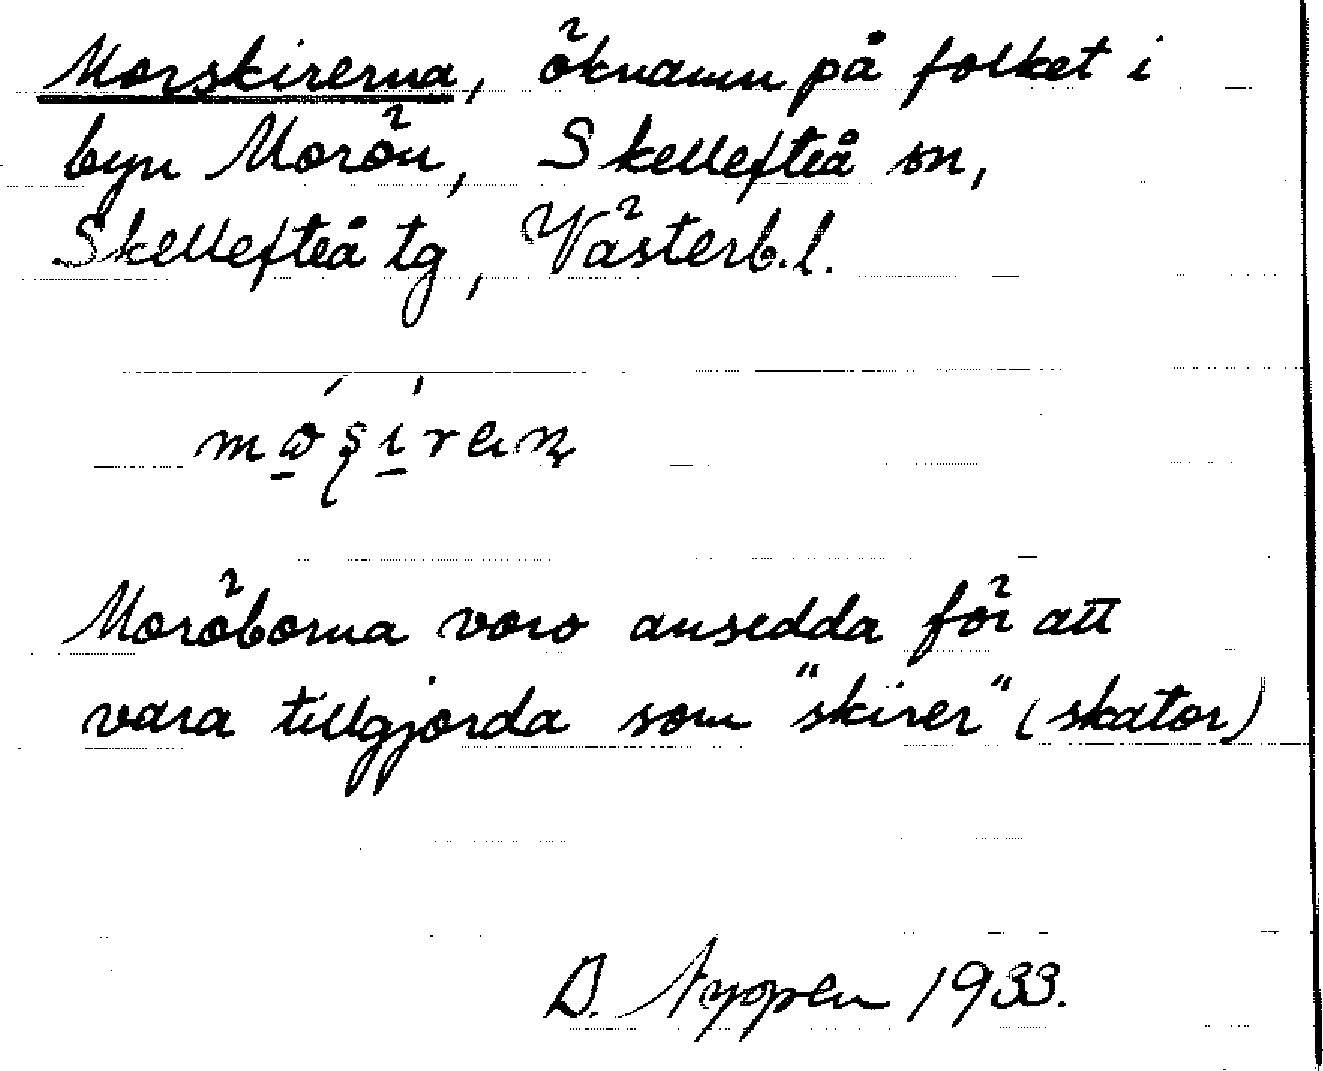 Morskirerna, öknamn på folket i
byn Morön, Skellefteå sn,
Skellefteå tg, Västerb.l.
Moröborna voro ansedda för att
vara tillgjorda som "skirer" (skator)
1933.